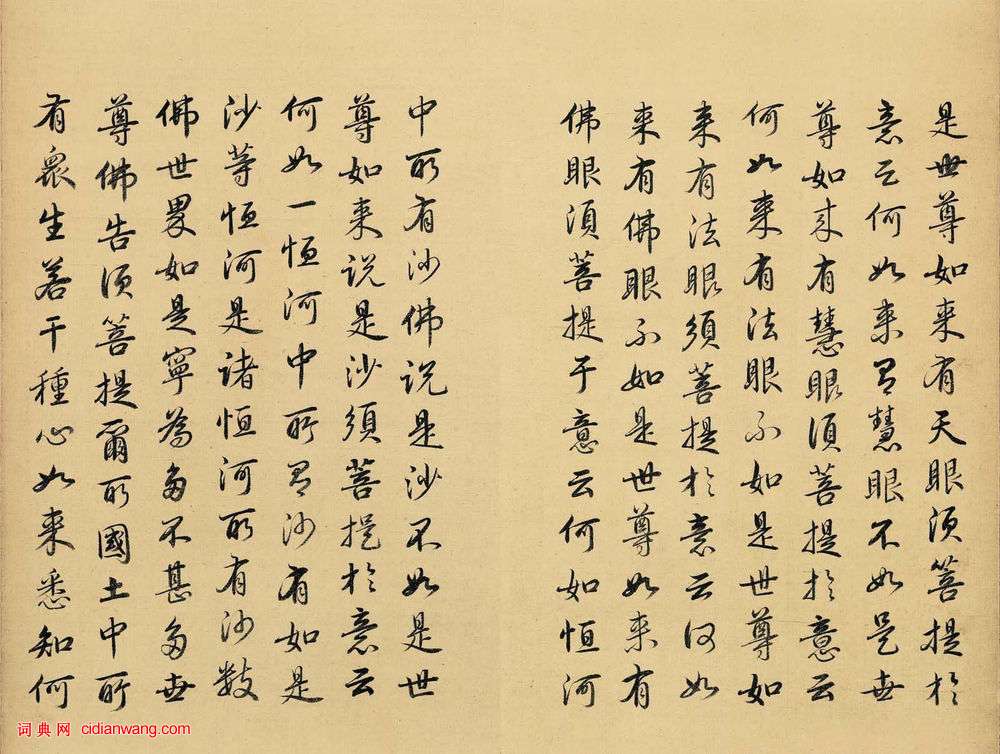 是世尊如来有天眼须菩提於
意云何如来有慧眼不如是世
尊如来有慧眼须菩提於意云
何如来有法眼不如是世尊如
来有法眼須菩提於意云何如
来有佛眼不如是世尊如来有
佛眼須菩提于意云何如恒河
中所有沙佛说是沙不如是世
尊如来说是沙須菩提於意云
何如一恒河中所有沙有如是
沙等恒河是诸恒河所有沙数
佛世界如是寧為多不甚多世
尊佛告须菩提爾所國土中所
有眾生若干種心如来悉知何
词典网 cidianwang.com